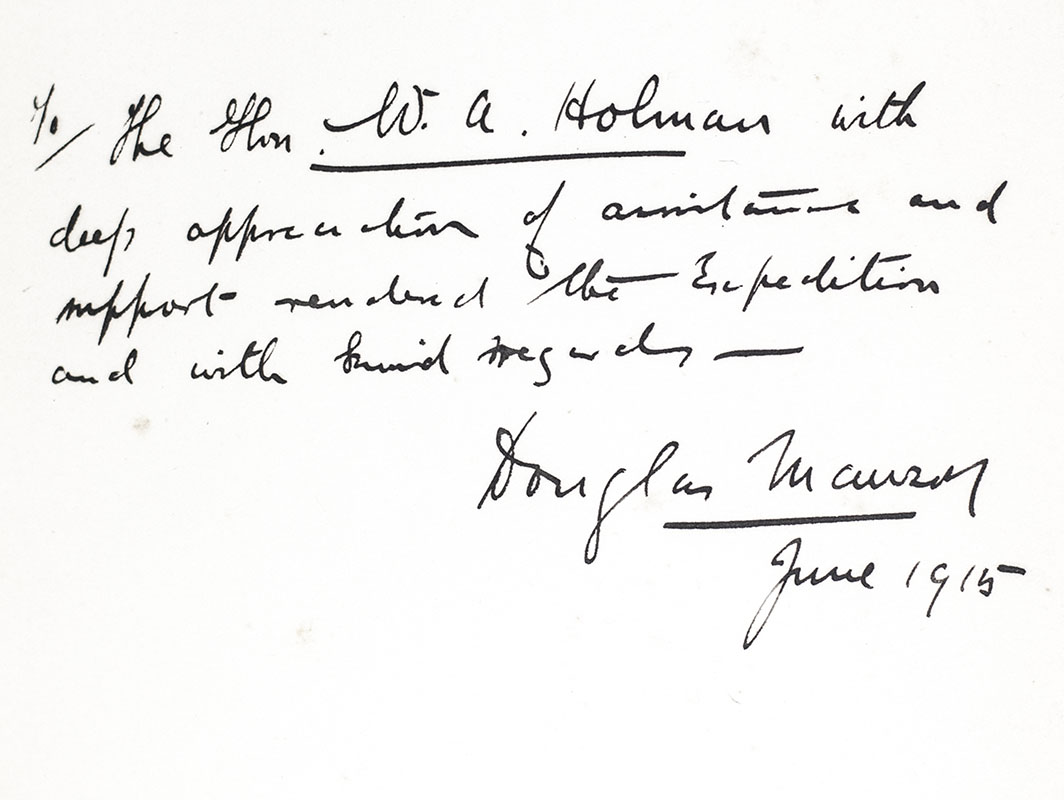 To/ The Hon. W. A. Holman with
deep appreciation of assistance and
support rendered the Expedition
and with kind regards —
Douglas Mawson
June 1915